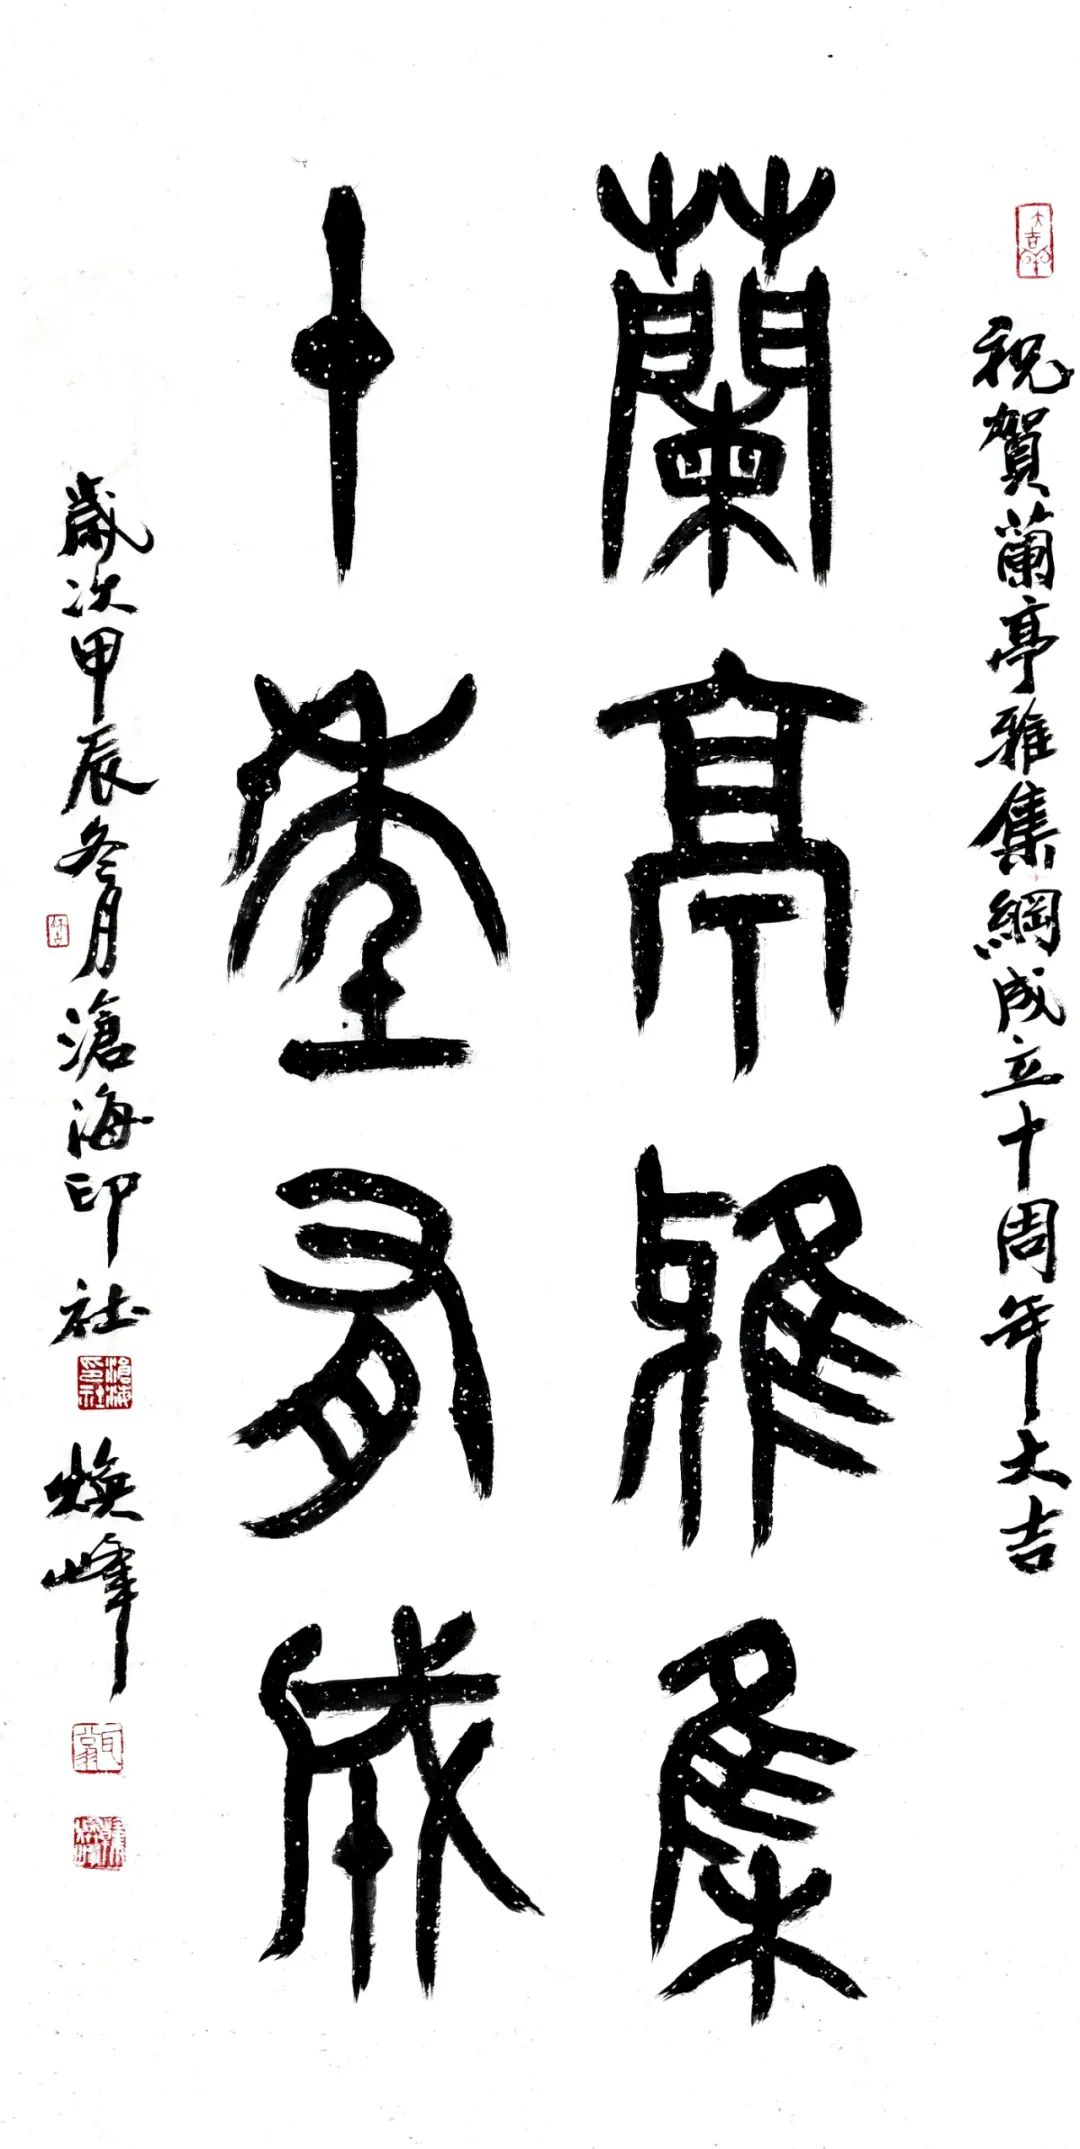 大吉羊
祝賀蘭亭雅集網成立十周年大吉
蘭亭雅集
十年有成
歲次甲辰冬月滄海印社
滄海印社
煥峰